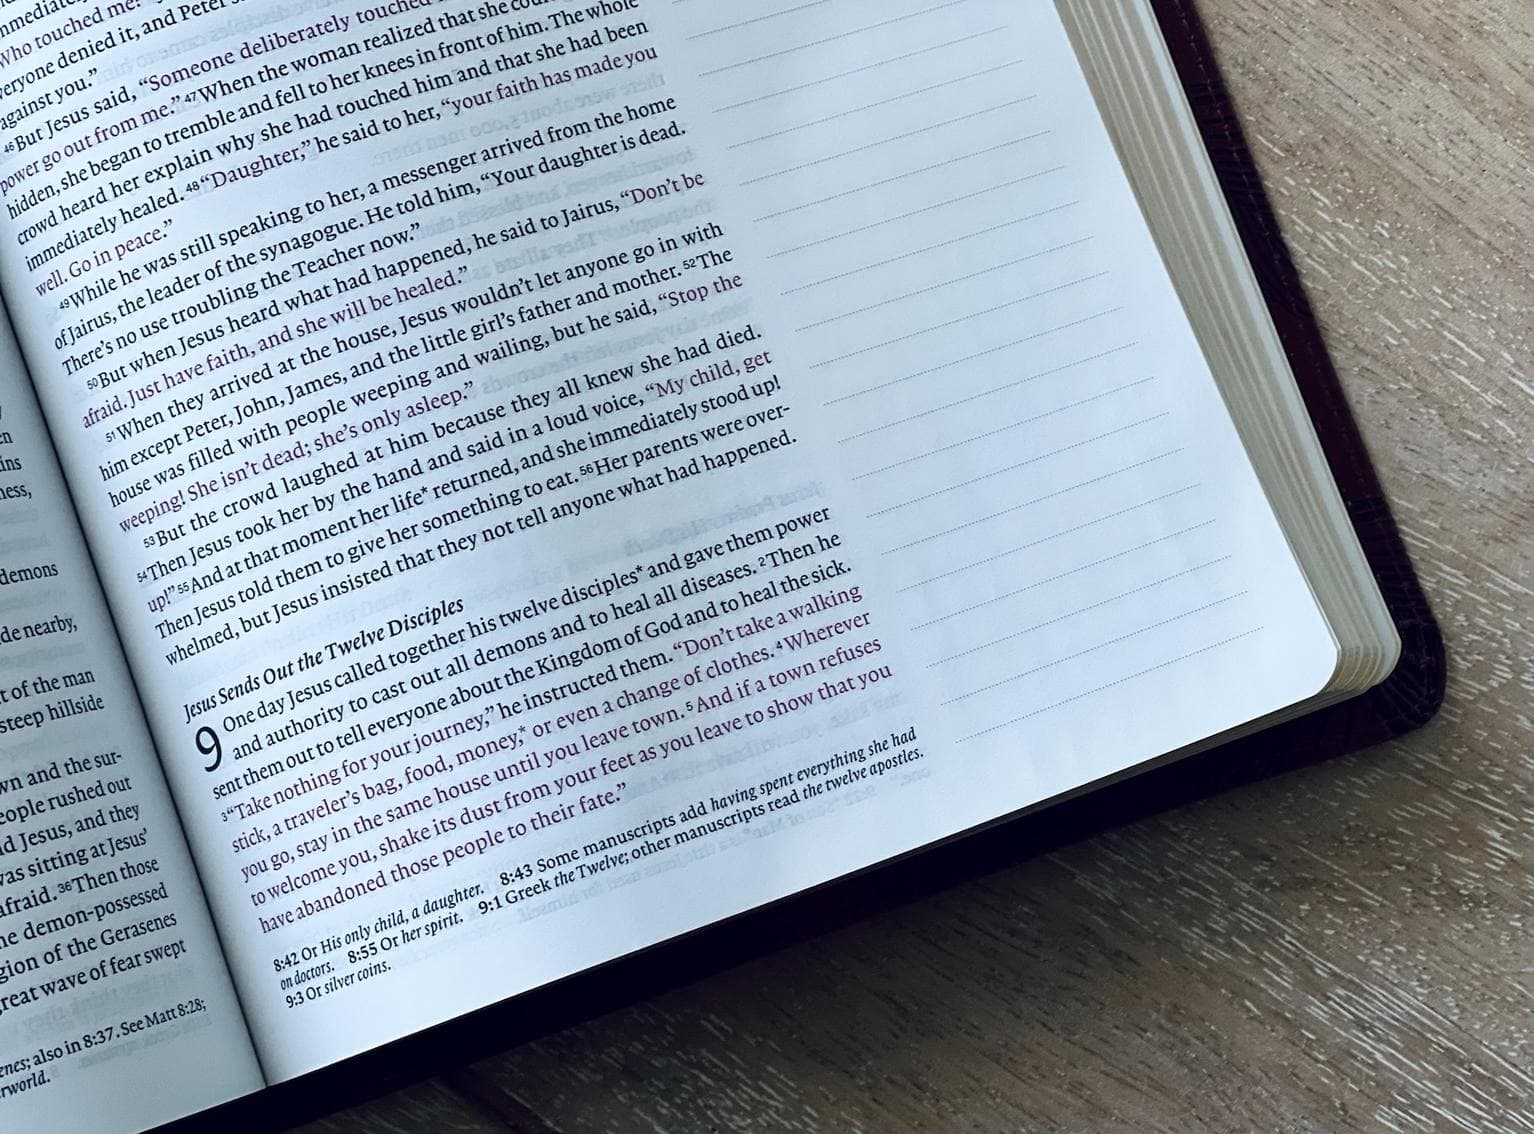 demons
de nearby,
t of the man
steep hillside
wn and the sur-
eople rushed out
d Jesus, and they
was sitting at Jesus'
afraid. 36 Then those
he demon-possessed
gion of the Gerasenes
reat wave of fear swept
enes; also in 8:37. See Matt 8:28;
rworld.
Who touched me?
everyone denied it, and Peter
against you.”
46 But Jesus said, “Someone deliberately touched
power go out from me.” 47 When the woman realized that she
hidden, she began to tremble and fell to her knees in front of him. The whole
crowd heard her explain why she had touched him and that she had been
immediately healed. 48 “Daughter,” he said to her, “your faith has made you
well. Go in peace.”
49 While he was still speaking to her, a messenger arrived from the home
of Jairus, the leader of the synagogue. He told him, “Your daughter is dead.
There’s no use troubling the Teacher now.”
50 But when Jesus heard what had happened, he said to Jairus, “Don’t be
afraid. Just have faith, and she will be healed.”
51 When they arrived at the house, Jesus wouldn’t let anyone go in with
him except Peter, John, James, and the little girl’s father and mother. 52 The
house was filled with people weeping and wailing, but he said, “Stop the
weeping! She isn’t dead; she’s only asleep.”
53 But the crowd laughed at him because they all knew she had died.
54 Then Jesus took her by the hand and said in a loud voice, “My child, get
up!” 55 And at that moment her life* returned, and she immediately stood up!
Then Jesus told them to give her something to eat. 56 Her parents were over-
whelmed, but Jesus insisted that they not tell anyone what had happened.
Jesus Sends Out the Twelve Disciples
9 One day Jesus called together his twelve disciples* and gave them power
and authority to cast out all demons and to heal all diseases. 2 Then he
sent them out to tell everyone about the Kingdom of God and to heal the sick.
3 “Take nothing for your journey,” he instructed them. “Don’t take a walking
stick, a traveler’s bag, food, money,* or even a change of clothes. 4 Wherever
you go, stay in the same house until you leave town. 5 And if a town refuses
to welcome you, shake its dust from your feet as you leave to show that you
have abandoned those people to their fate.”
8:42 Or His only child, a daughter. 8:43 Some manuscripts add having spent everything she had
on doctors. 8:55 Or her spirit. 9:1 Greek the Twelve; other manuscripts read the twelve apostles.
9:3 Or silver coins.